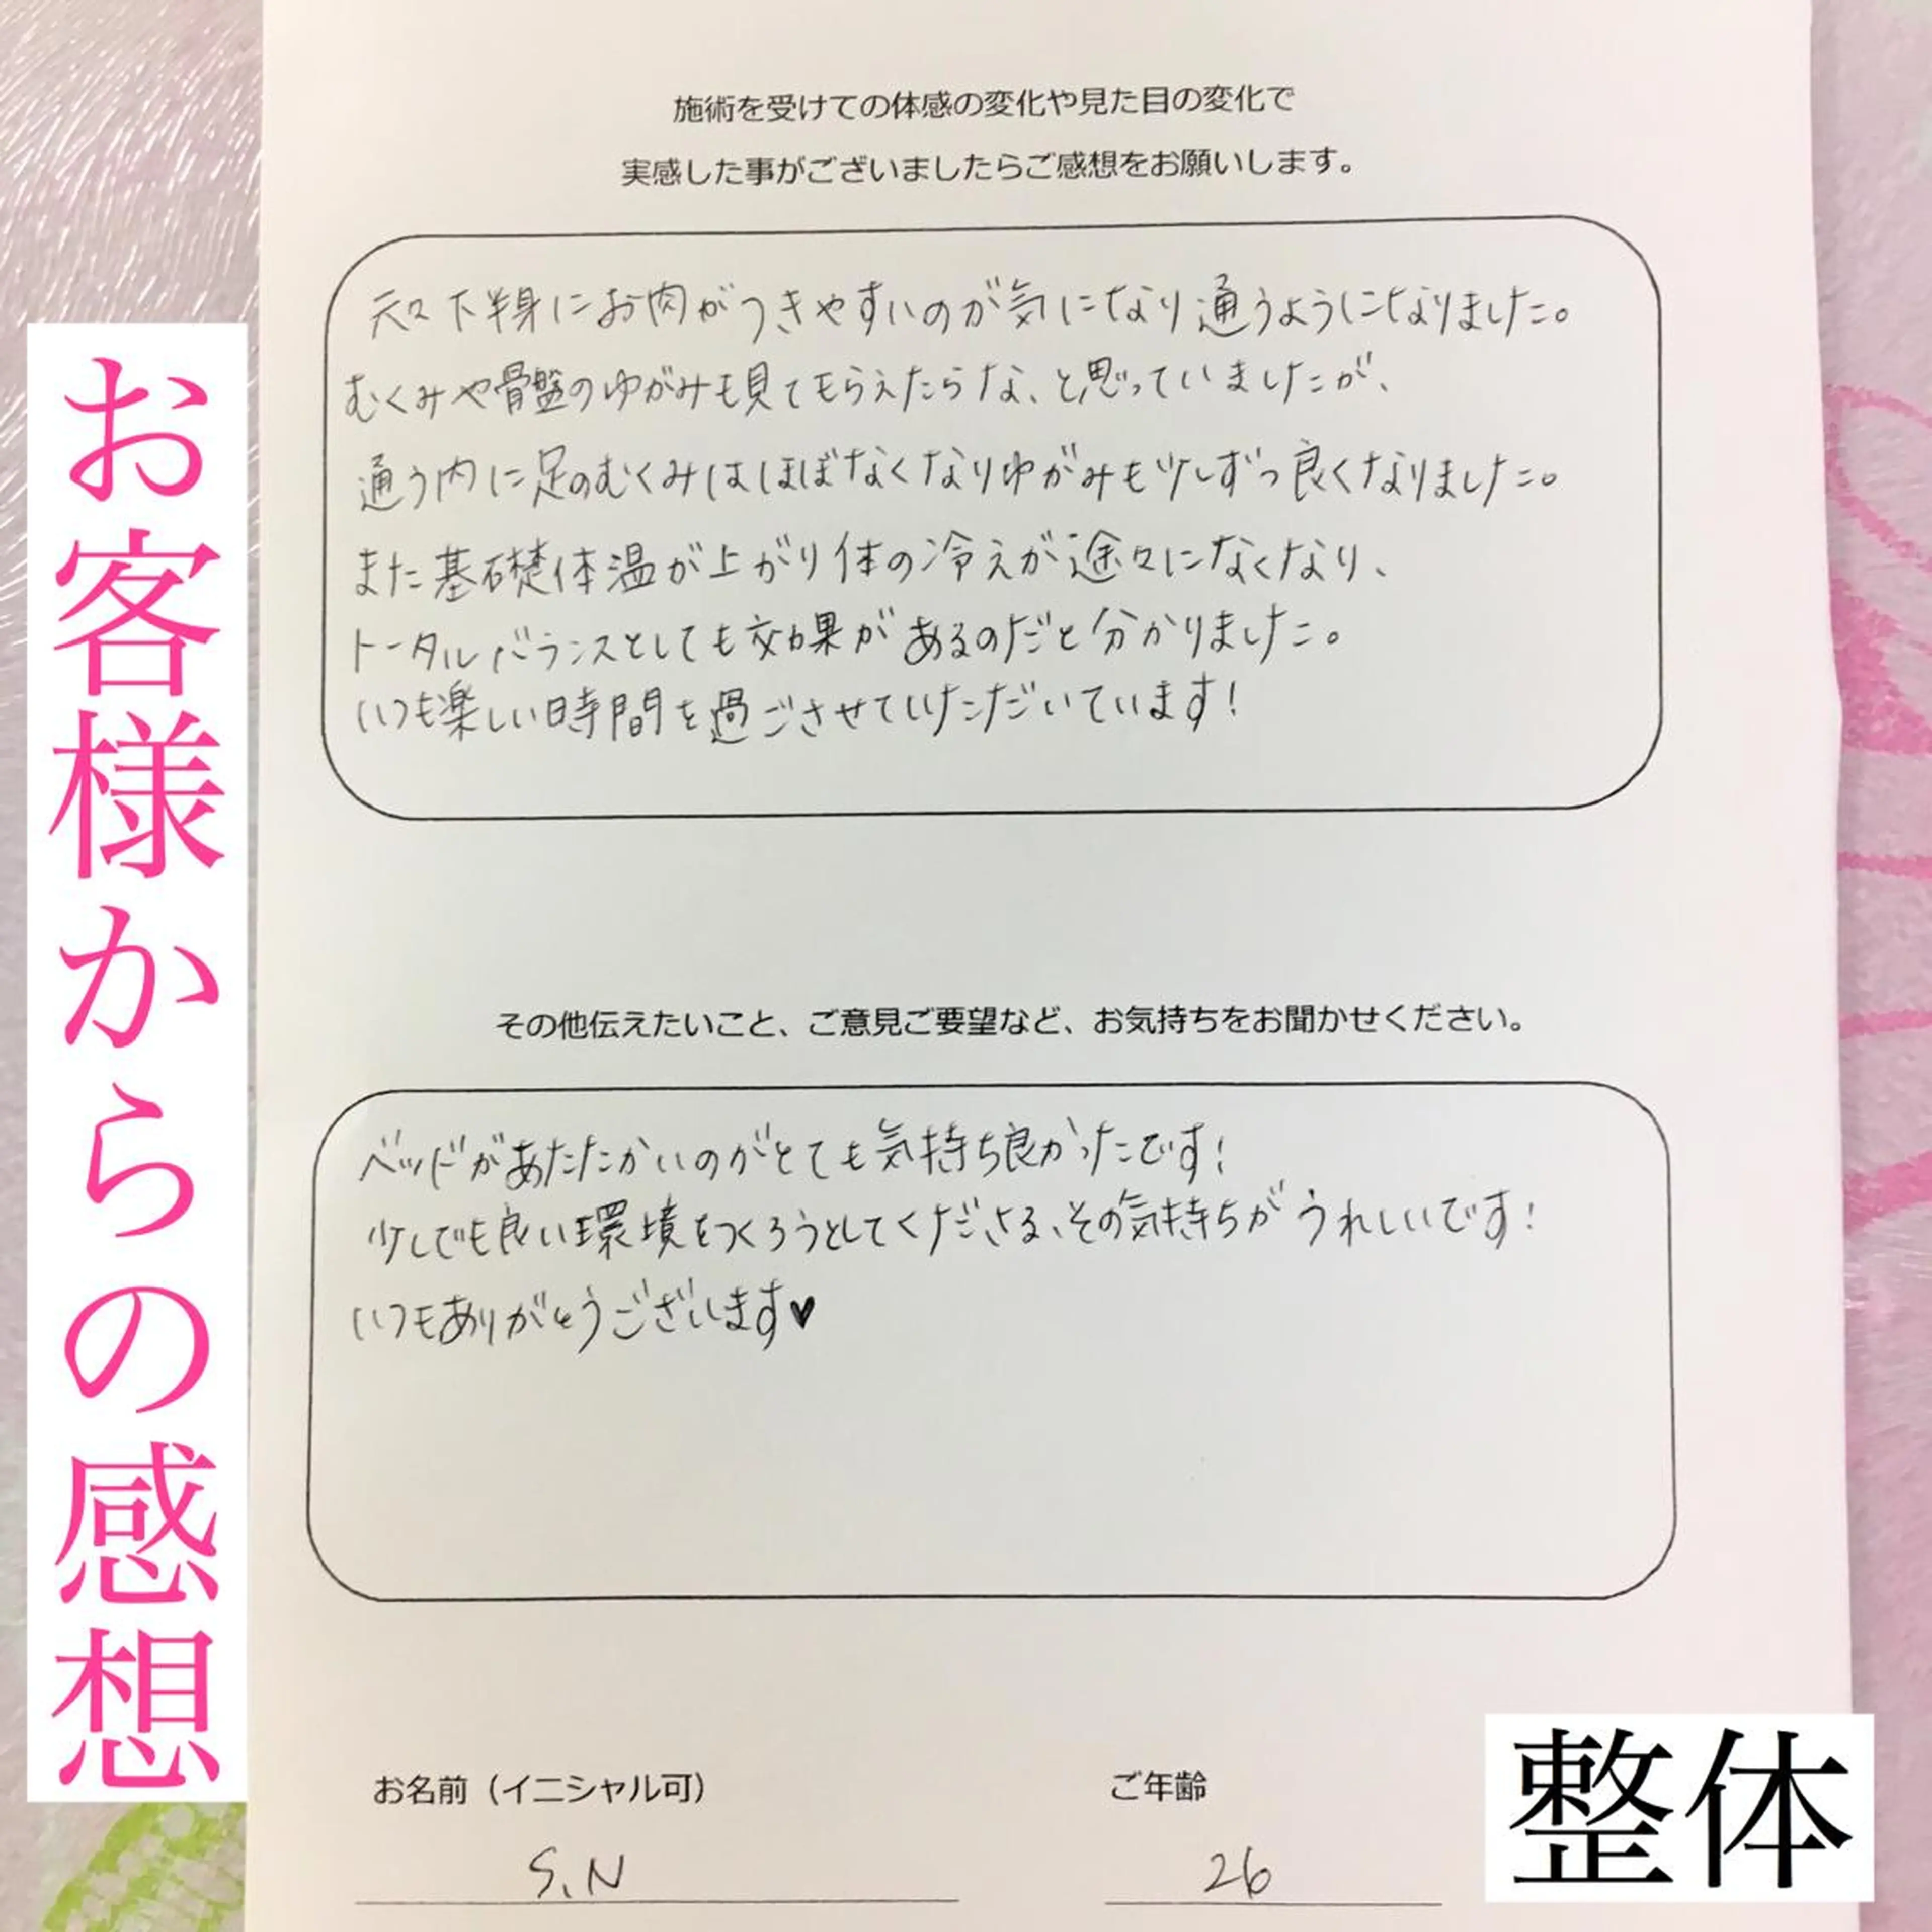 お客様からの感想
施術を受けての体感の変化や見た目の変化で
実感した事がございましたらご感想をお願いします。
元々下半身にお肉がつきやすいのが気になり通うようになりました。
むくみや骨盤のゆがみも見てもらえたらな、と思っていましたが、
通う内に足のむくみはほぼなくなりゆがみも少しずつ良くなりました。
また基礎体温が上がり体の冷えが途々になくなり、
トータルバランスとしても効果があるのだと分かりました。
いつも楽しい時間を過ごさせていただいています!
その他伝えたいこと、ご意見ご要望など、お気持ちをお聞かせください。
ベッドがあたたかいのがとても気持ち良かったです!
少しでも良い環境をつくろうとしてくださる、その気持ちがうれしいです!
いつもありがとうございます♥
お名前（イニシャル可） ご年齢
S.N 26
整体